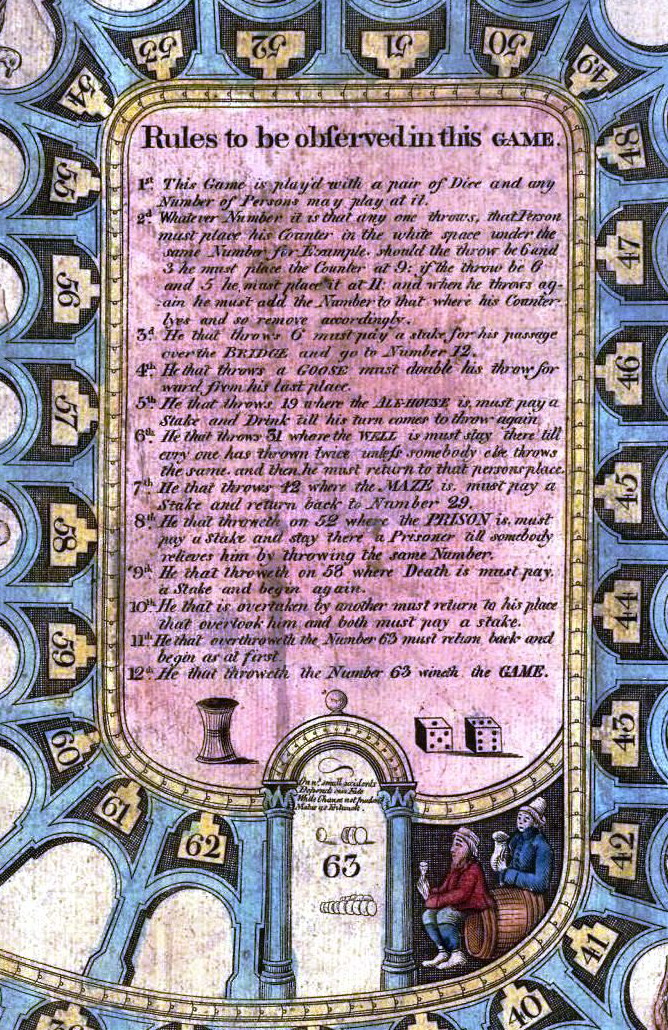 53
52
51
50
49
54
48
55
47
56
46
57
45
58
44
59
43
60
61
62
42
41
40
Rules to be obſerved in this GAME.
1st This Game is play'd with a pair of Dice and any
Number of Persons may play at it.
2d Whatever Number it is that any one throws, that Person
must place his Counter in the white space under the
same Number, for Example. should the throw be 6 and
3 he must place the Counter at 9: if the throw be 6
and 5 he must place it at 11: and when he throws ag-
ain he must add the Number to that where his Counter
lyes and so remove accordingly.
3d He that throws 6 must pay a stake for his passage
over the BRIDGE and go to Number 12.
4th He that throws a GOOSE must double his throw for
ward from his last place.
5th He that throws 19 where the ALE-HOUSE is, must pay a
Stake and Drink till his turn comes to throw again
6th He that throws 31 where the WELL is must stay there till
evry one has thrown twice unleſs somebody else throws
the same. and then he must return to that persons place.
7th He that throws 42 where the MAZE is. must pay a
Stake and return back to Number 29.
8th He that throweth on 52 where the PRISON is, must
pay a Stake and stay there a Prisoner till somebody
relieves him by throwing the same Number.
9th He that throweth on 58 where Death is must pay.
a Stake and begin again.
10th He that is overtaken by another must return to his place
that overtook him and both must pay a stake.
11th He that overthroweth the Number 63 must return back and
begin as at first
12th He that throweth the Number 63 wineth the GAME.
On small accidents
Depends our Fate
While Chance not
63